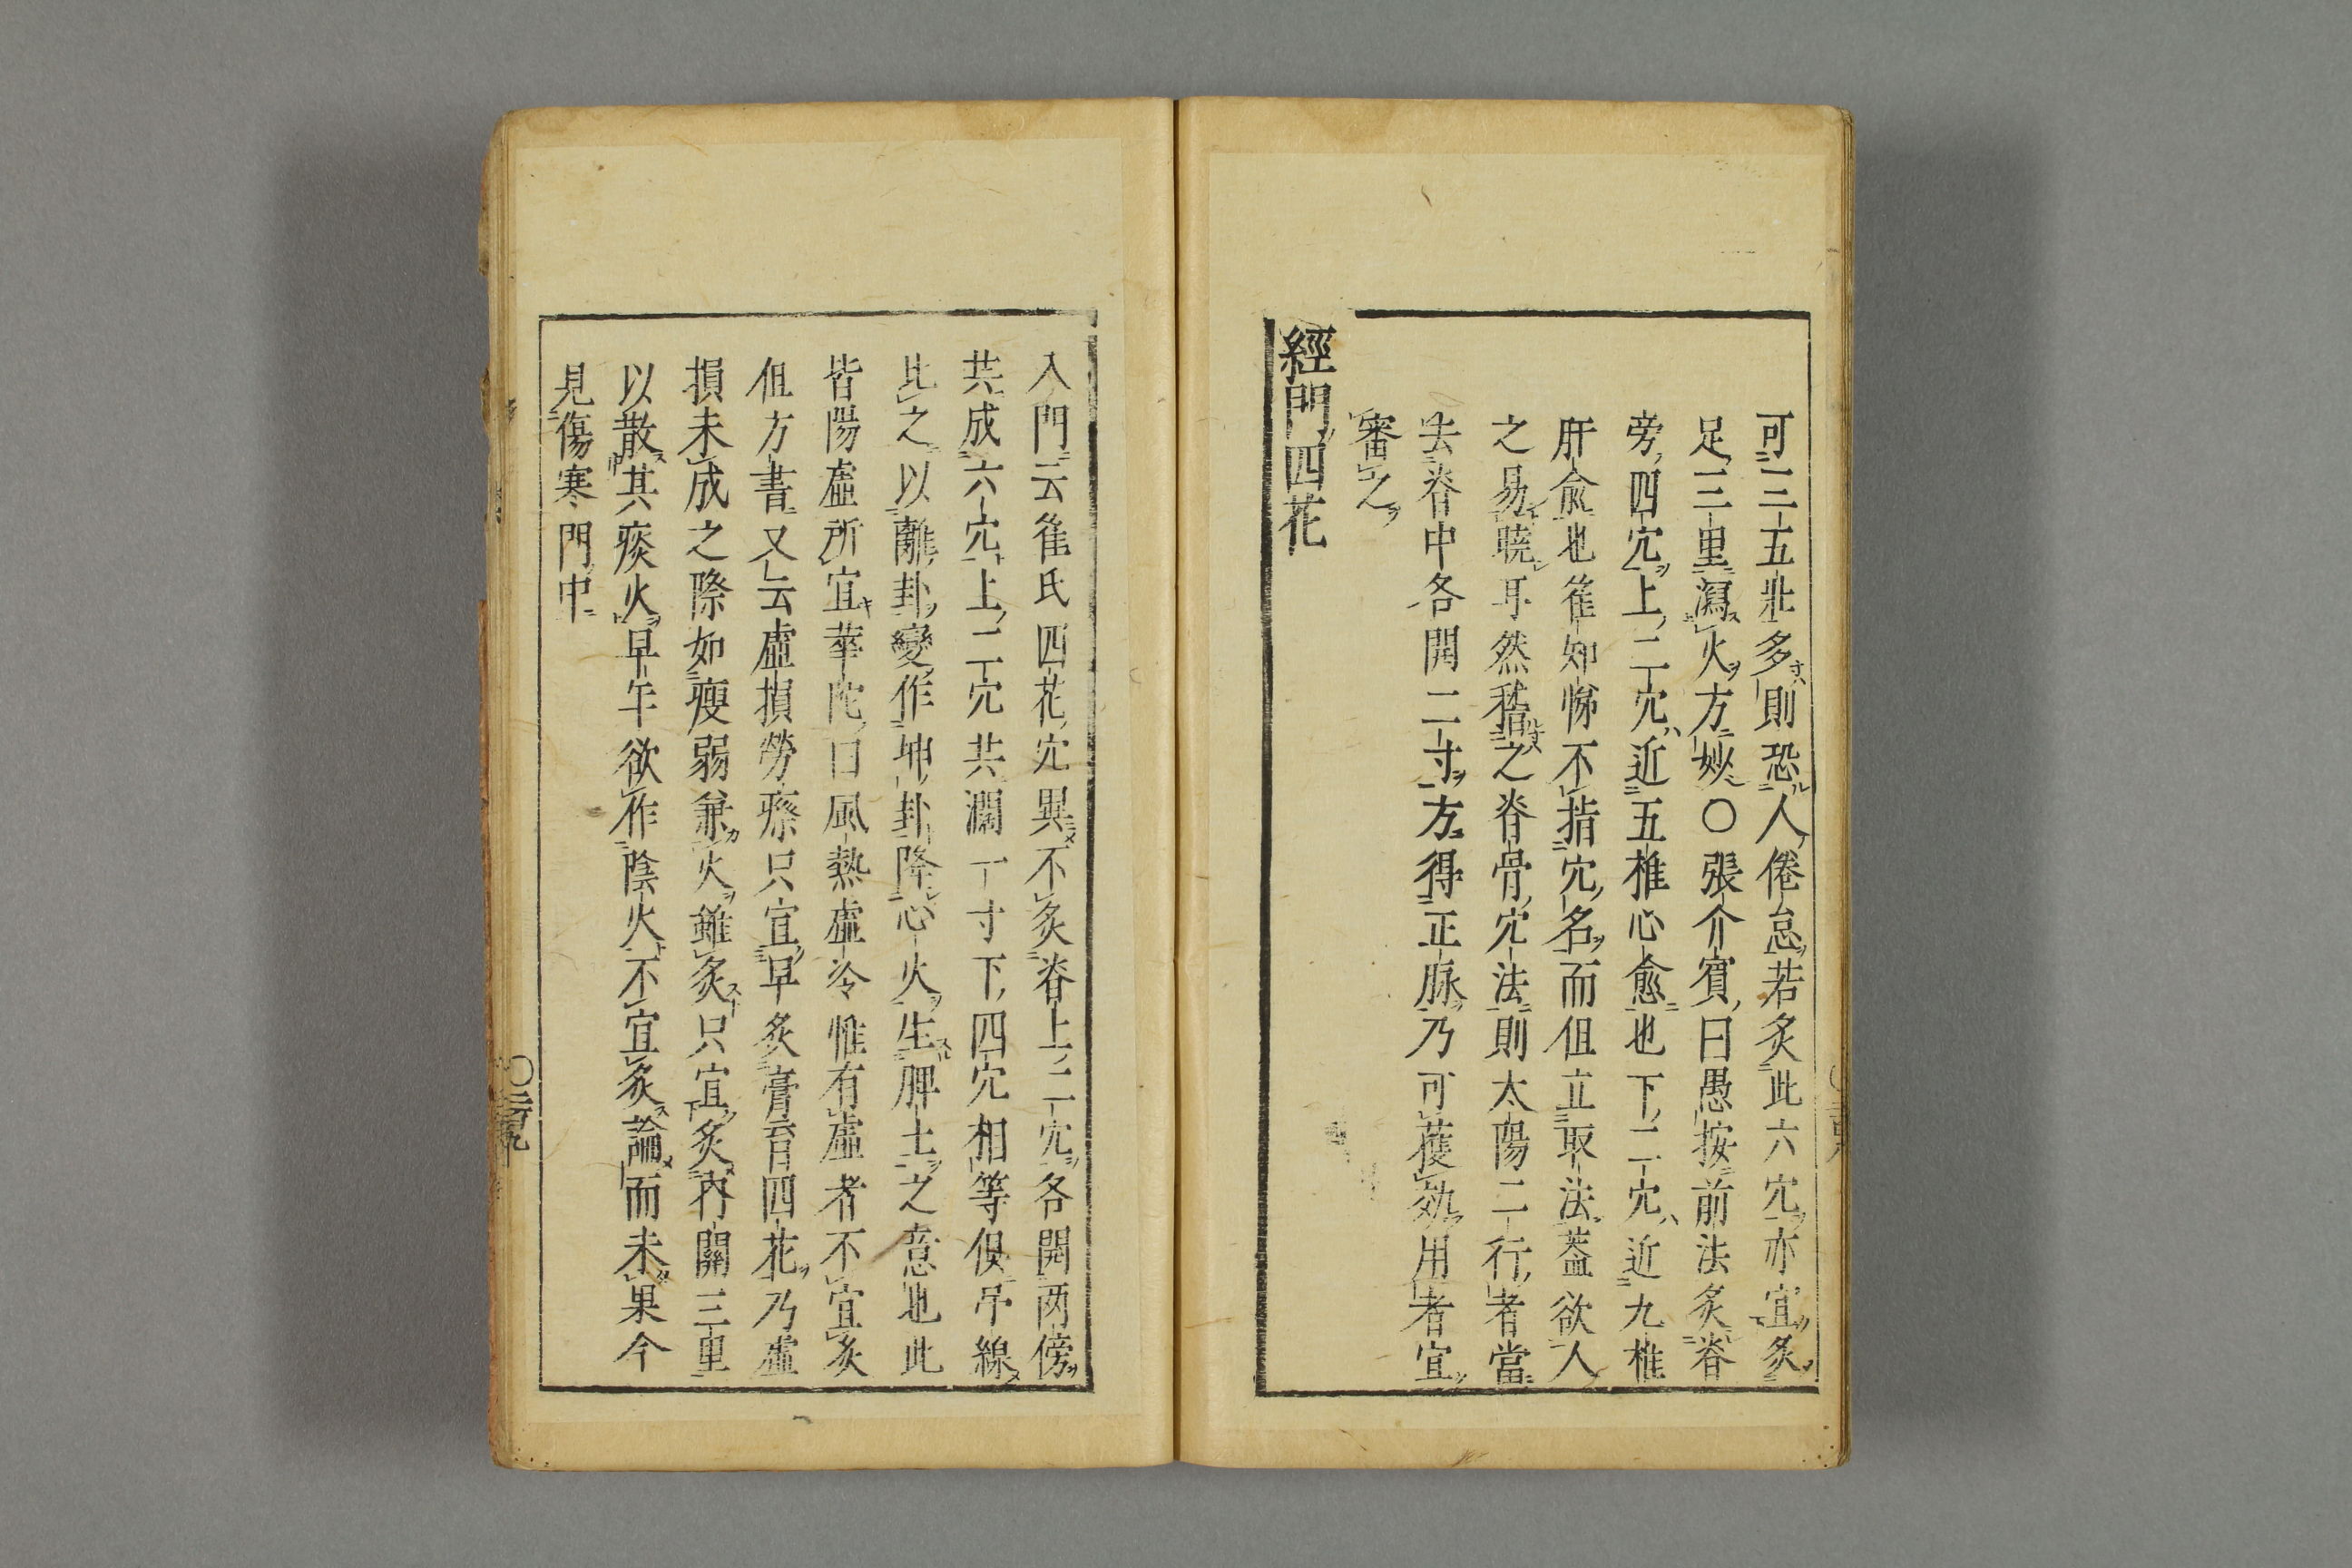 可三五壯多則恐人倦怠若灸此六穴亦宜灸
足三里瀉火方妙〇張介賓曰愚按前法灸脊
旁四穴上二穴近五椎心俞也下二穴近九椎
肝俞也崔知悌不指穴名而但立取法蓋欲人
之易曉耳然稽之脊骨穴法則太陽二行者當
去脊中各開二寸方得正脉乃可獲效用者宜
審之
經門四花
入門云崔氏四花穴異不灸脊上二穴各開两傍
共成六穴上二穴共濶一寸下四穴相等俱吊線
比之以離卦變作坤卦降心火生脾土之意也此
皆陽虛所宜華陀曰風熱虛冷惟有虛者不宜灸
但方書又云虛損勞瘵只宜早灸膏肓四花乃虛
損未成之際如瘦弱兼火雖灸只宜灸內關三里
以散其痰火早年欲作陰火不宜灸論而未果今
見傷寒門中